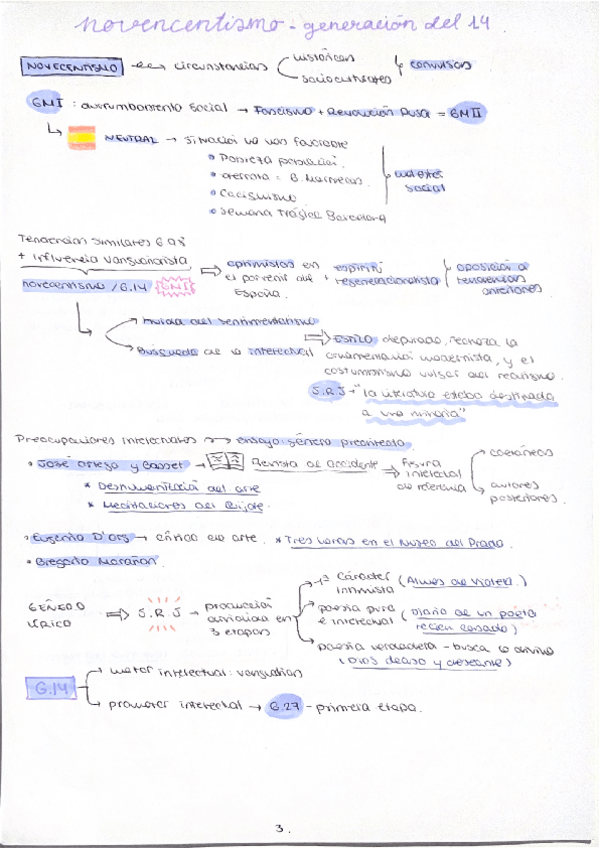 novencentismo - generación del 14
NOVECENTISMO circunstancias históricas convulsas
socioculturales
GMI : derrumbamiento social → Fascismo + Revolución Rusa = GMII
NEUTRAL → situación no muy favorable
• Pobreza población
• Guerra : G. Marruecos
• Caciquismo
• Semana Trágica Barcelona
malestar social
Tendencias similares G 98
+ influencia vanguardista
novecentismo / G.14 GMI
optimistas en el porvenir de España.
+ espíritu regeneracionista
oposición a tendencias anteriores
Huida del sentimentalismo
Búsqueda de lo intelectual
Estilo depurado, rechaza la
ornamentación modernista, y el
costumbrismo vulgar del realismo.
S.R.J → "la literatura estaba destinada
a una minoría"
Preocupaciones intelectuales → ensayo: género predilecto.
• José Ortega y Gasset → Revista de occidente → figura intelectual de referencia
coetáneos
autores posteriores.
* Deshumanización del arte
* Meditaciones del Quijote.
• Eugenio D'ors → crítico de arte. * Tres horas en el Museo del Prado.
• Gregorio Marañón.
GÉNERO LÍRICO ⇒ S.R.J → producción dividida en 3 etapas
1ª Carácter intimista (Almas de violeta.)
poesía pura e intelectual (Diario de un poeta
recién casado)
poesía verdadera - busca lo divino
(Dios deseado y deseante)
G.14
motor intelectual: vanguardias
promotor intelectual → G.27 - primera etapa.
3.